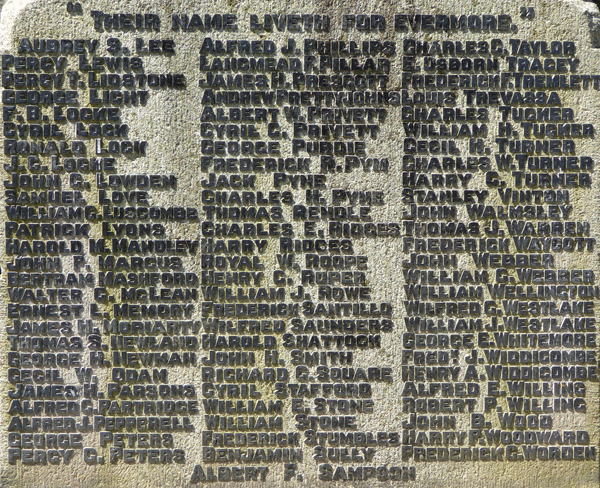 "THEIR NAME LIVETH FOR EVERMORE."
AUBREY S. LEE
PERCY LEWIS
PERCY T. LIDSTONE
GEORGE LIGHT
F. B. LOCKE
CYRIL LOCK
RONALD LOCK
J. C. LOCKE
JOHN G. LOWDEN
SAMUEL LOVE
WILLIAM G. LUSCOMBE
PATRICK LYONS
HAROLD W. MANDLEY
JOHN P. MARCUS
BERTRAM MASHFORD
WALTER G. MCLEAN
ERNEST E. MEMORY
JAMES H. MORIARTY
THOMAS S. NEWLAND
GEORGE R. NEWMAN
CECIL W. ODAM
JAMES H. PARSONS
ALFRED G. PARTRIDGE
ALFRED J. PEPPERELL
GEORGE PETERS
PERCY G. PETERS
ALFRED J. PHILLIPS
LANGMEAD F. PILLAR
JAMES H. PRESCOTT
ANDREW PRETTYJOHNS
ALBERT W. PRIVETT
CYRIL C. PRIVETT
GEORGE PURDIE
FREDERICK R. PYM
JACK PYNE
CHARLES H. PYNE
THOMAS RENDLE
CHARLES E. RIDGES
HARRY RIDGES
ROYAL W. ROOPE
HENRY C. ROPER
WILLIAM J. ROWE
FREDERICK SANTILLO
WILFRED SAUNDERS
HAROLD SHATTOCK
JOHN H. SMITH
RICHARD G. SQUARE
CYRIL STAFFORD
WILLIAM E. STONE
WILLIAM STONE
FREDERICK STUMBLES
BENJAMIN SULLY
CHARLES C. TAYLOR
E. OSBORN TRACEY
FREDERICK F. TREMLETT
LOUIS TREVASSA
CHARLES TUCKER
WILLIAM H. TUCKER
CECIL H. TURNER
CHARLES W. TURNER
HARRY C. TURNER
STANLEY VINTON
JOHN WALMSLEY
THOMAS J. WARREN
FREDERICK WAYCOTT
JOHN WEBBER
WILLIAM G. WEBBER
WILLIAM WELLINGTON
WILFRED G. WESTLAKE
WILLIAM J. WESTLAKE
GEORGE E. WHITEMORE
FREDK. J. WIDDICOMBE
HENRY A. WIDDICOMBE
ALFRED P. WILLING
ROBERT P. WILLING
JOHN B. WOOD
HARRY F. WOODWARD
FREDERICK G. WORDEN
ALBERT F. SAMPSON